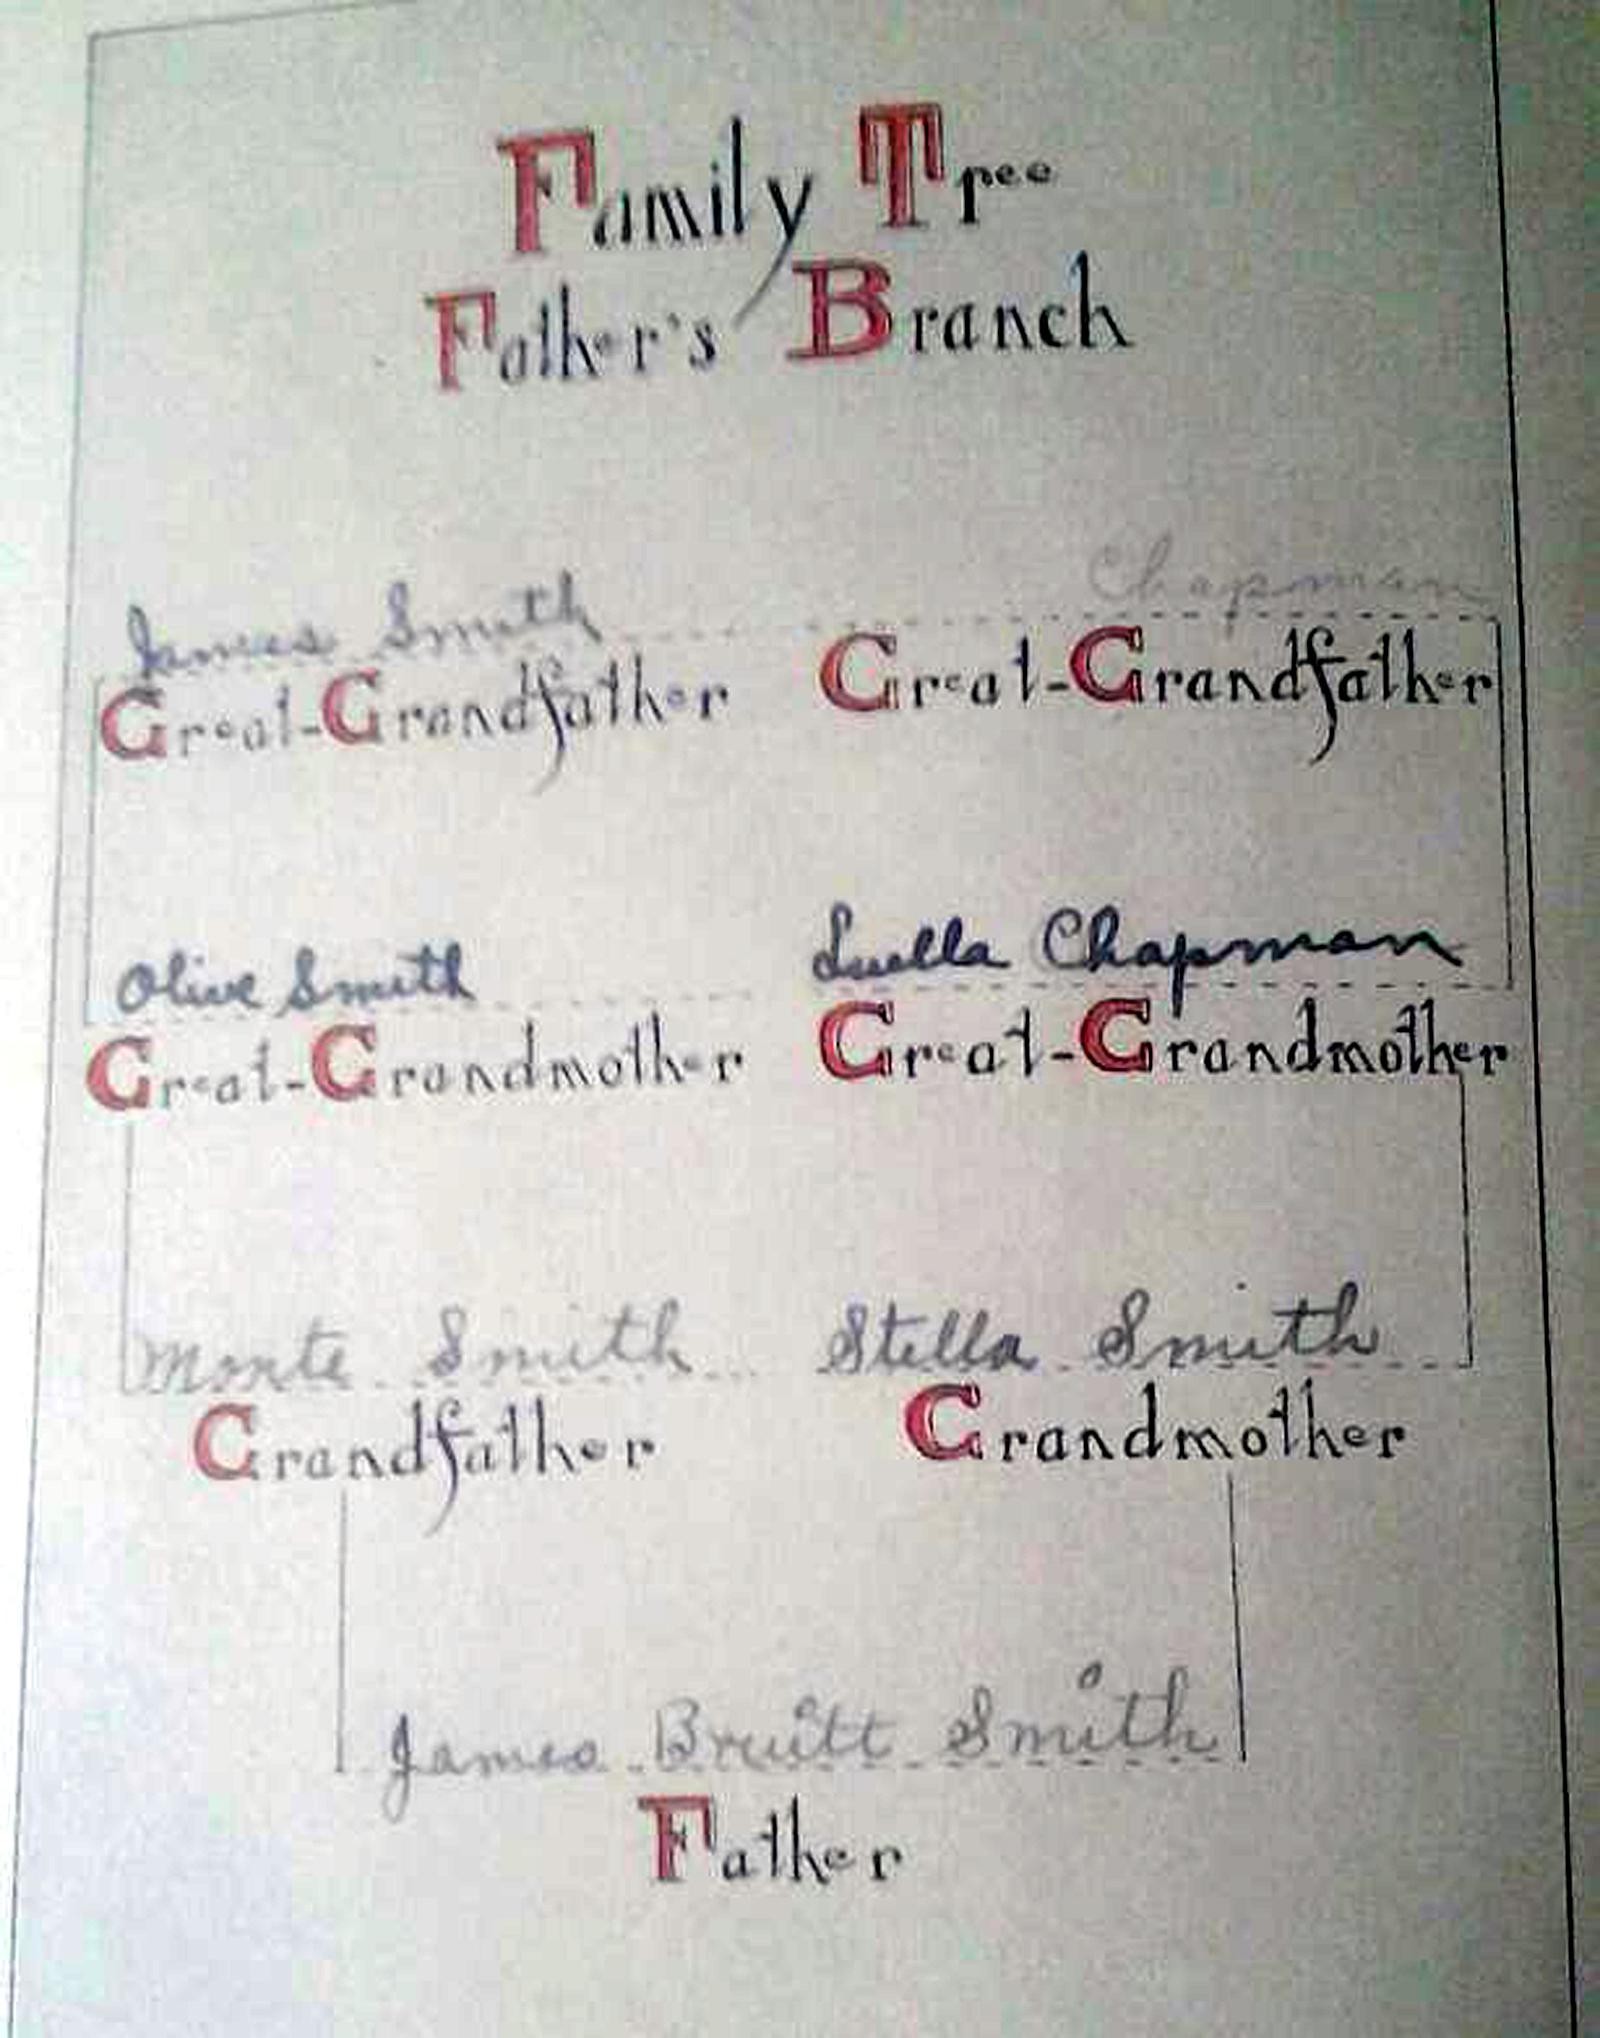 Family Tree
Father's Branch
James Smith
Chapman
Great-Grandfather
Great-Grandfather
Olive Smith
Luella Chapman
Great-Grandmother
Great-Grandmother
Monte Smith
Stella Smith
Grandfather
Grandmother
James Bruitt Smith
Father